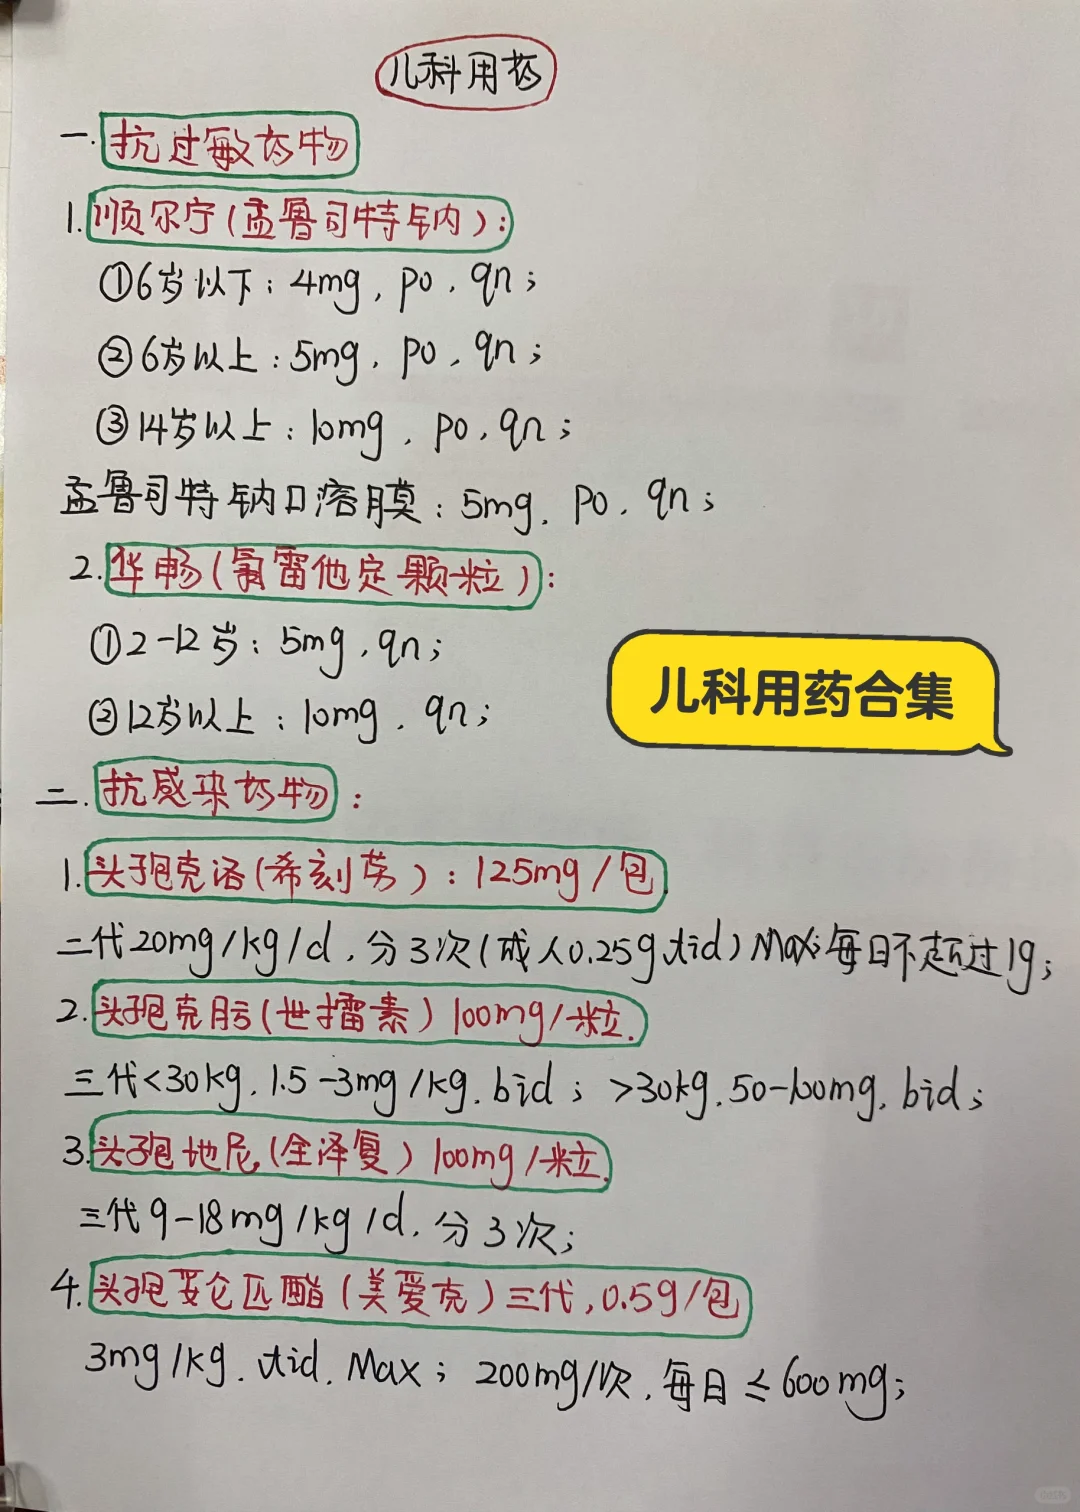 儿科用药
一.抗过敏药物
1.顺尔宁(孟鲁司特钠):
①6岁以下:4mg,po,qn;
②6岁以上:5mg,po,qn;
③14岁以上:10mg,po,qn;
孟鲁司特钠口溶膜:5mg,po,qn;
2.华畅(氯雷他定颗粒):
①2-12岁:5mg,qn;
②12岁以上:10mg,qn;
儿科用药合集
二.抗感染药物:
1.头孢克洛(希刻劳):125mg/包
二代20mg/kg/d,分3次(成人0.25g,tid)Max:每日不超过1g;
2.头孢克肟(世擂素)100mg/粒.
三代<30kg,1.5-3mg/kg,bid;>30kg,50-100mg,bid;
3.头孢地尼(全泽复)100mg/粒.
三代9-18mg/kg/d,分3次;
4.头孢妥仑匹酯(美爱克)三代,0.5g/包
3mg/kg,tid,Max;200mg/次,每日≤600mg;